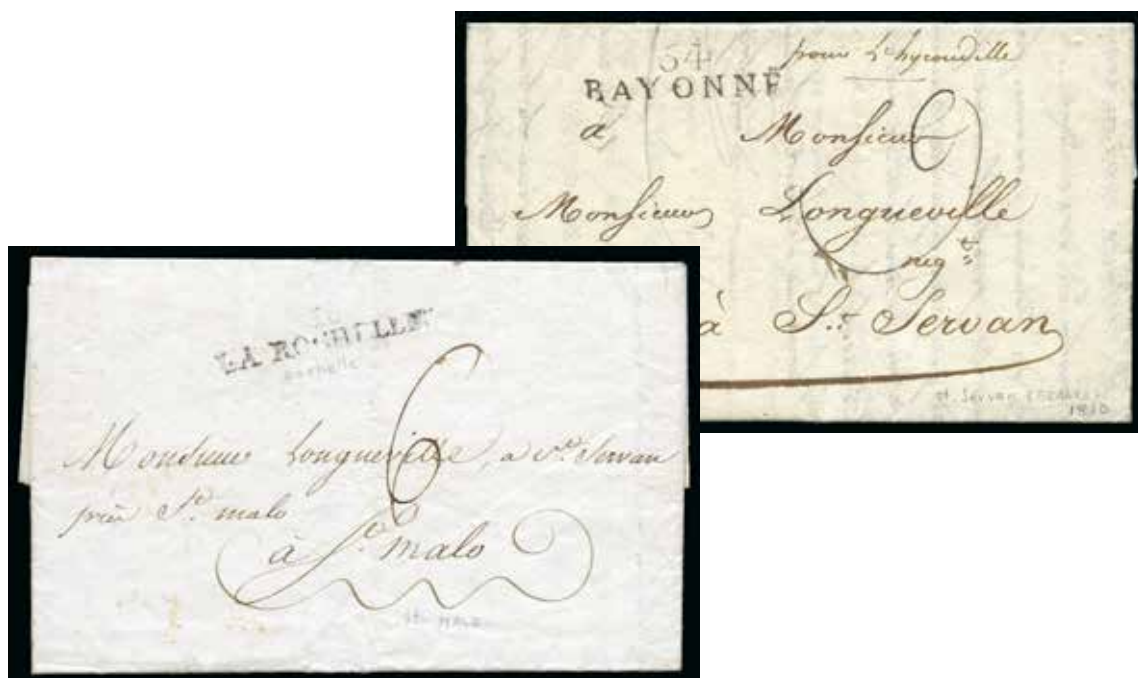 pour L'hyrondelle
64
BAYONNE
a Monsieur
Monsieur Longueville
neg.t
à S.t Servan
St. Servan
1810
LA ROCHELLE
Rochelle
6
Monsieur Longueville, a St. Servan
près St. malo
à St. malo
St. MALO